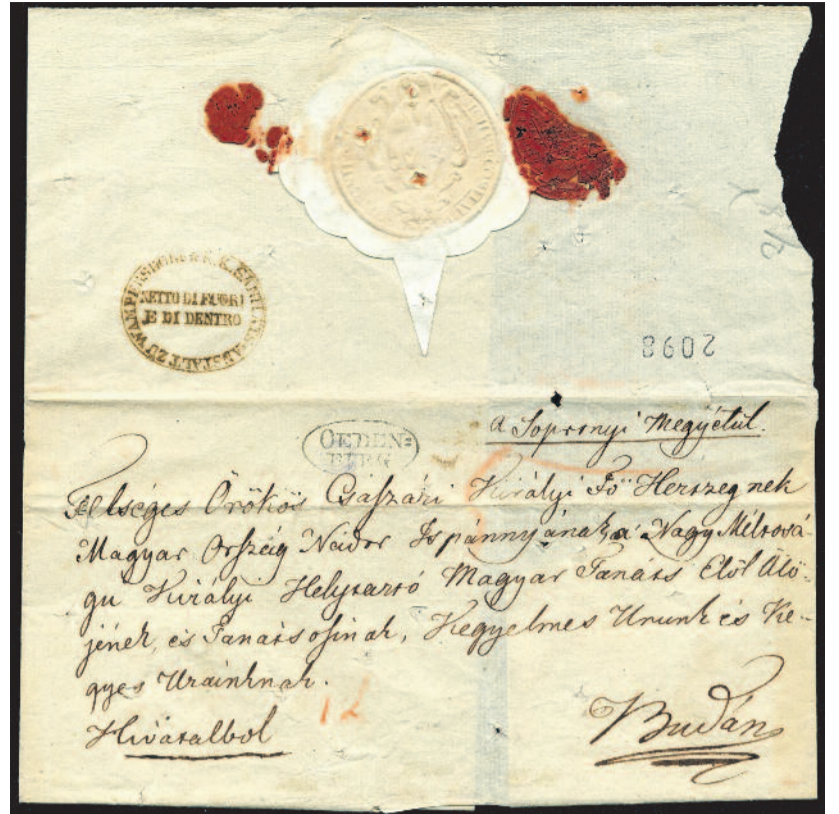 WAMPERSDORF K.K. SANITÄTS ANSTALT ZU
NETTO DI FUORI
E DI DENTRO
2098
a Sopronyi Megyétül.
OEDEN=
BURG
Felséges Örökös Császári Királyi Fő Herczegnek
Magyar Ország Nádor Ispánnyának, a Nagy Méltosá-
gu Királyi Helytartó Magyar Tanáts Elöl Ülö-
jének, és Tanátsosinak, Kegyelmes Urunk és Ke-
gyes Urainknak.
12
Hivatalbol
Budán